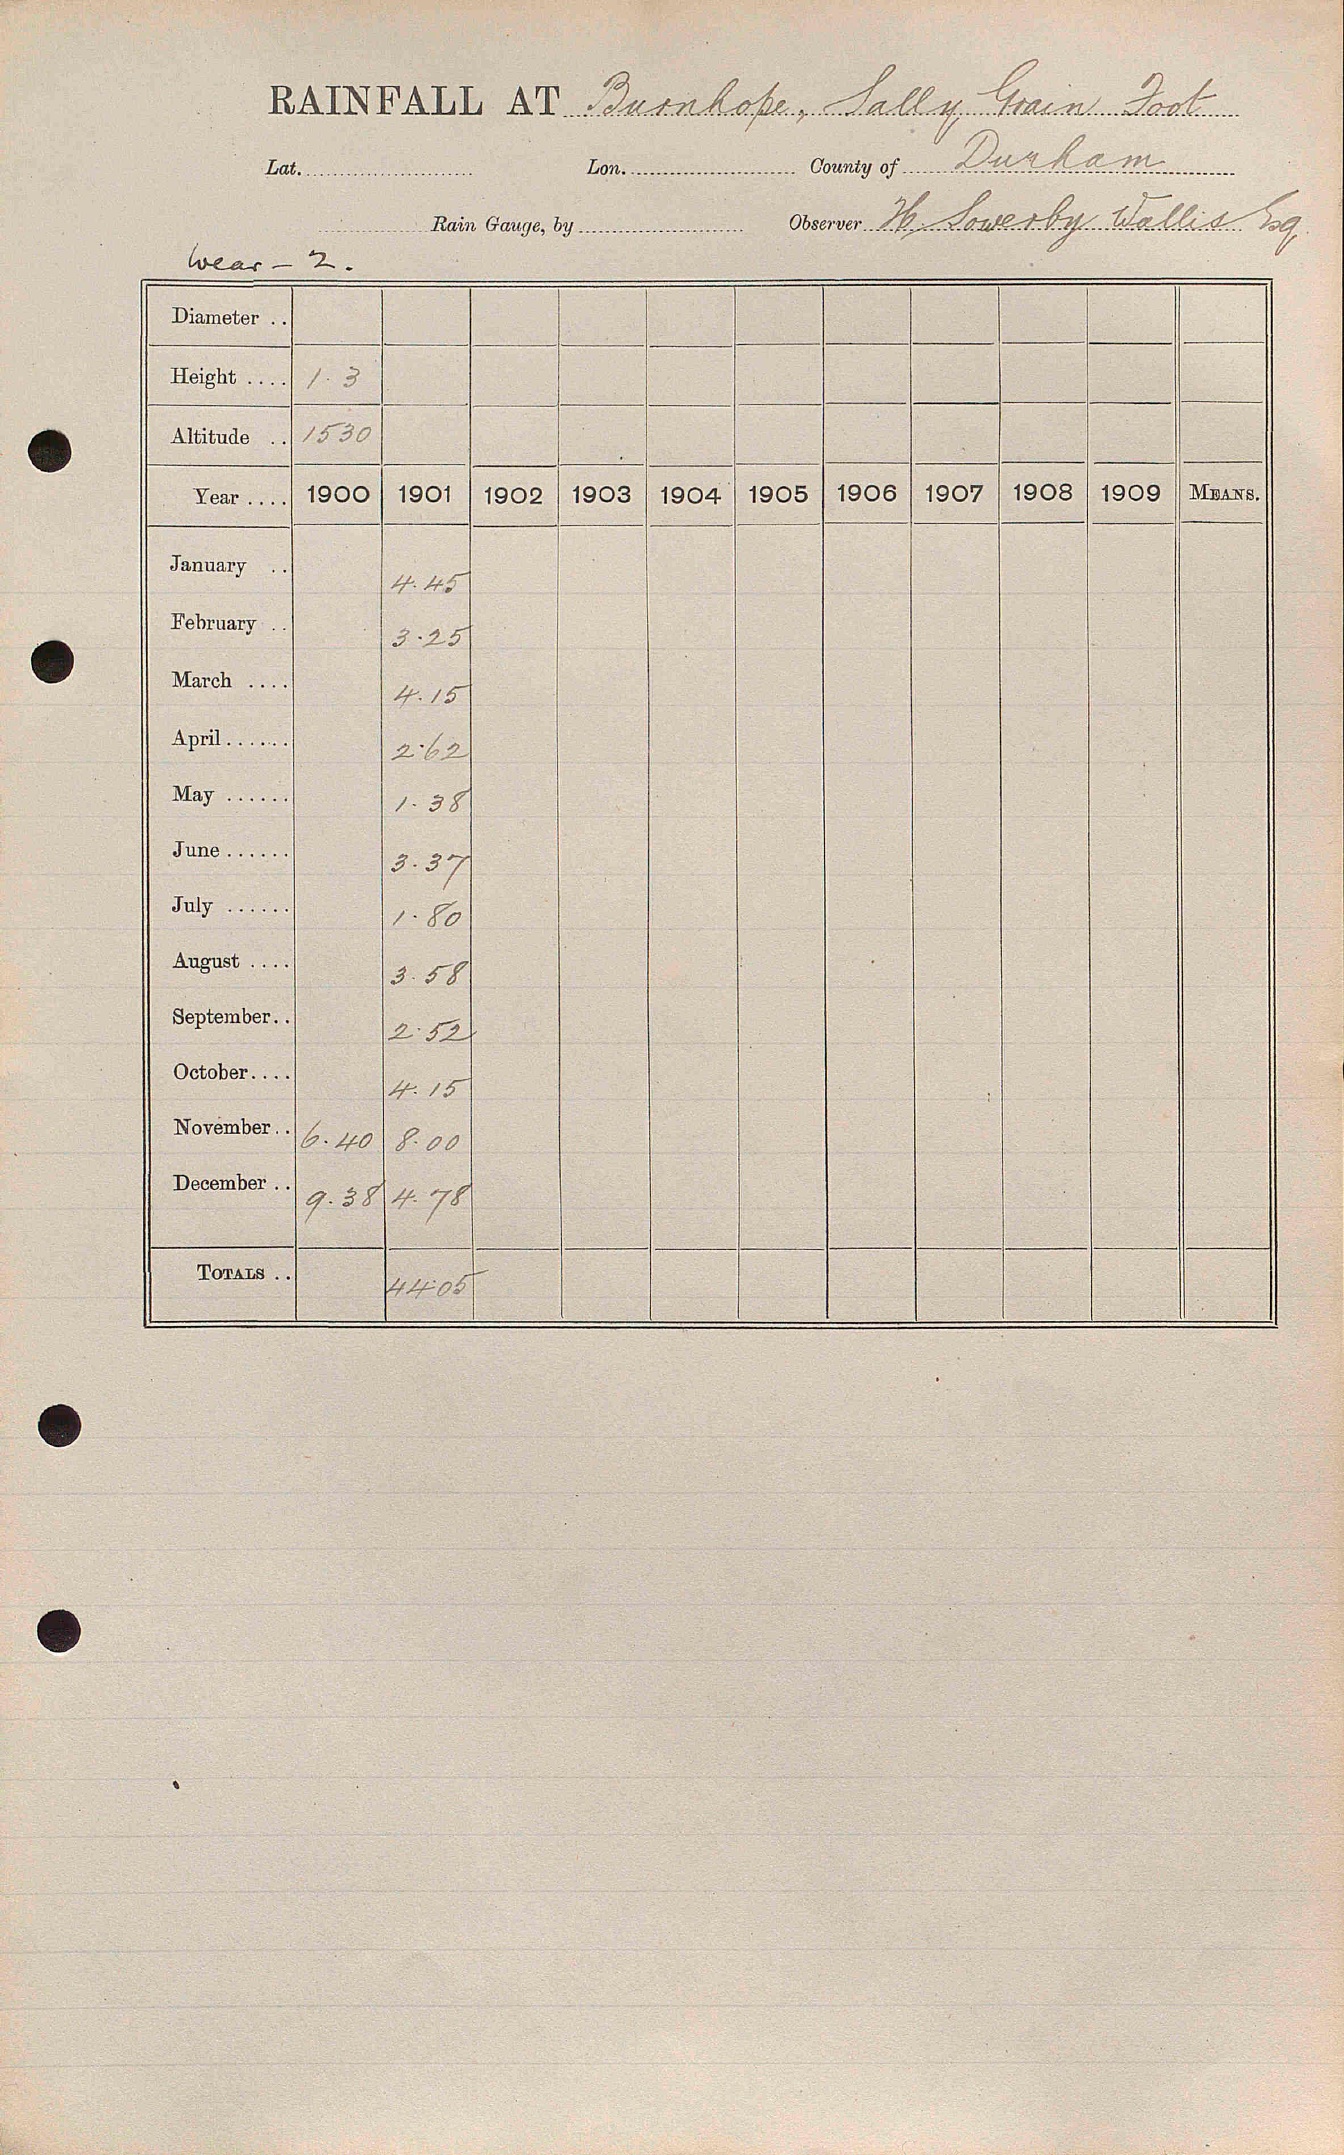 RAINFALL AT Burnhope, Sally Grain Foot
Lat. Lon. County of Durham
Rain Gauge, by Observer H. Sowerby Wallis Esq.
Wear - 2.
Diameter ..
Height .... 1.3
Altitude .. 1530
Year .... 1900 1901 1902 1903 1904 1905 1906 1907 1908 1909 MEANS.
January .. 4.45
February .. 3.25
March .... 4.15
April...... 2.62
May ...... 1.38
June...... 3.37
July ...... 1.80
August .... 3.58
September.. 2.52
October.... 4.15
November.. 6.40 8.00
December .. 9.38 4.78
TOTALS .. 44.05